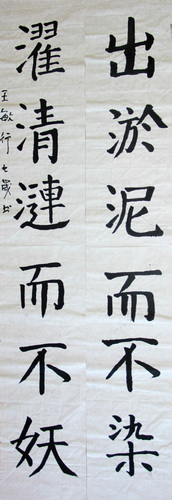 出淤泥而不染
濯清漣而不妖
王敏行七歲书